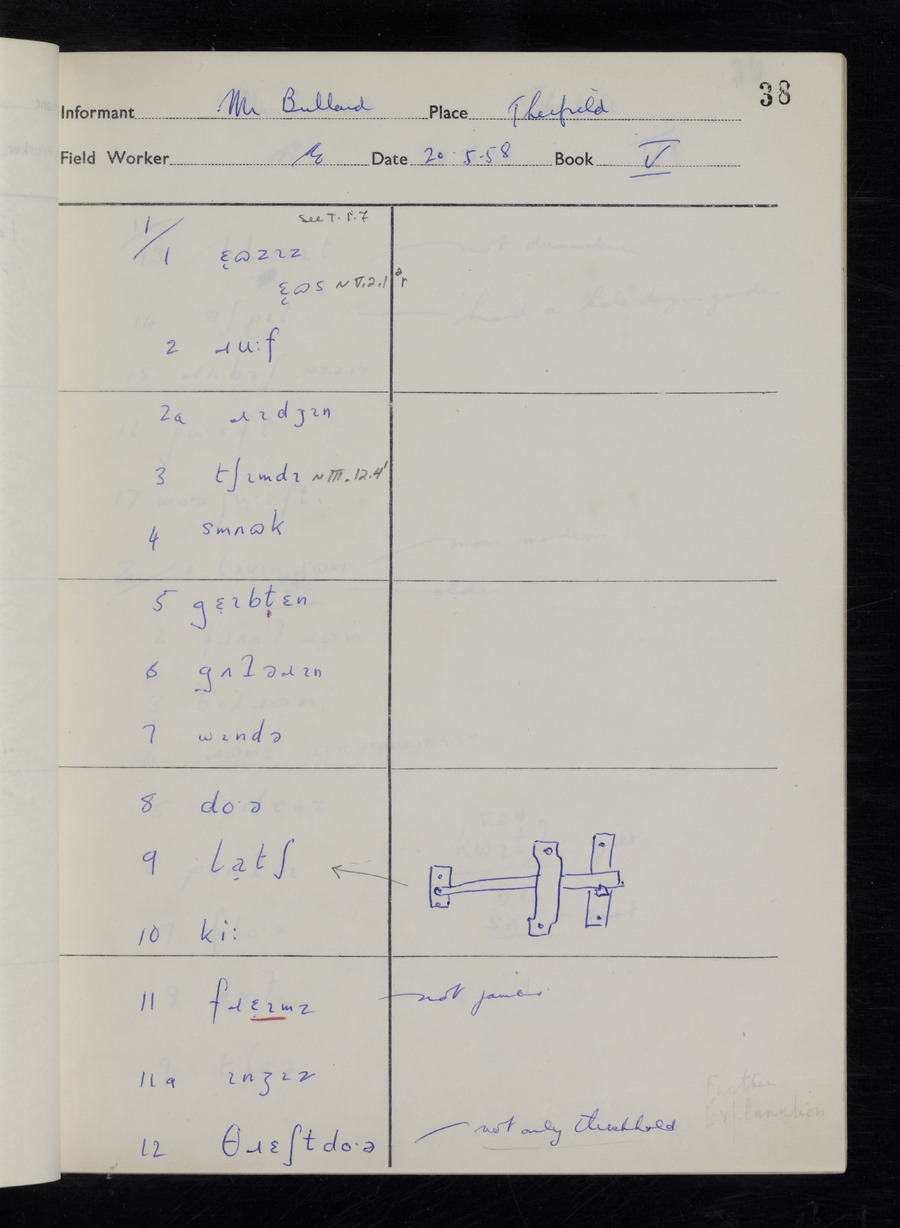 38
Informant Mr Bullard Place Therfield
Field Worker Date 20.5.58 Book V
See T. P. 7
1/1 ɛ̞ɷzɪz
ɛ̞ɷs ~ V.2.1
2 ɹu:f
2a ɹɪdʒɪn
3 tʃɪmdɪ ~ III.12.4'
4 smʌɷk
5 gɛɪbt̞ɛn
6 gʌɫəɹɪn
7 wɪndə
8 do·ə
9 la̞tʃ
10 ki:
11 fɹɛ̞ɪmz not
11a ɪnʒɪz
12 θɹɛʃtdo·ə not only threshhold
Further
Explanation